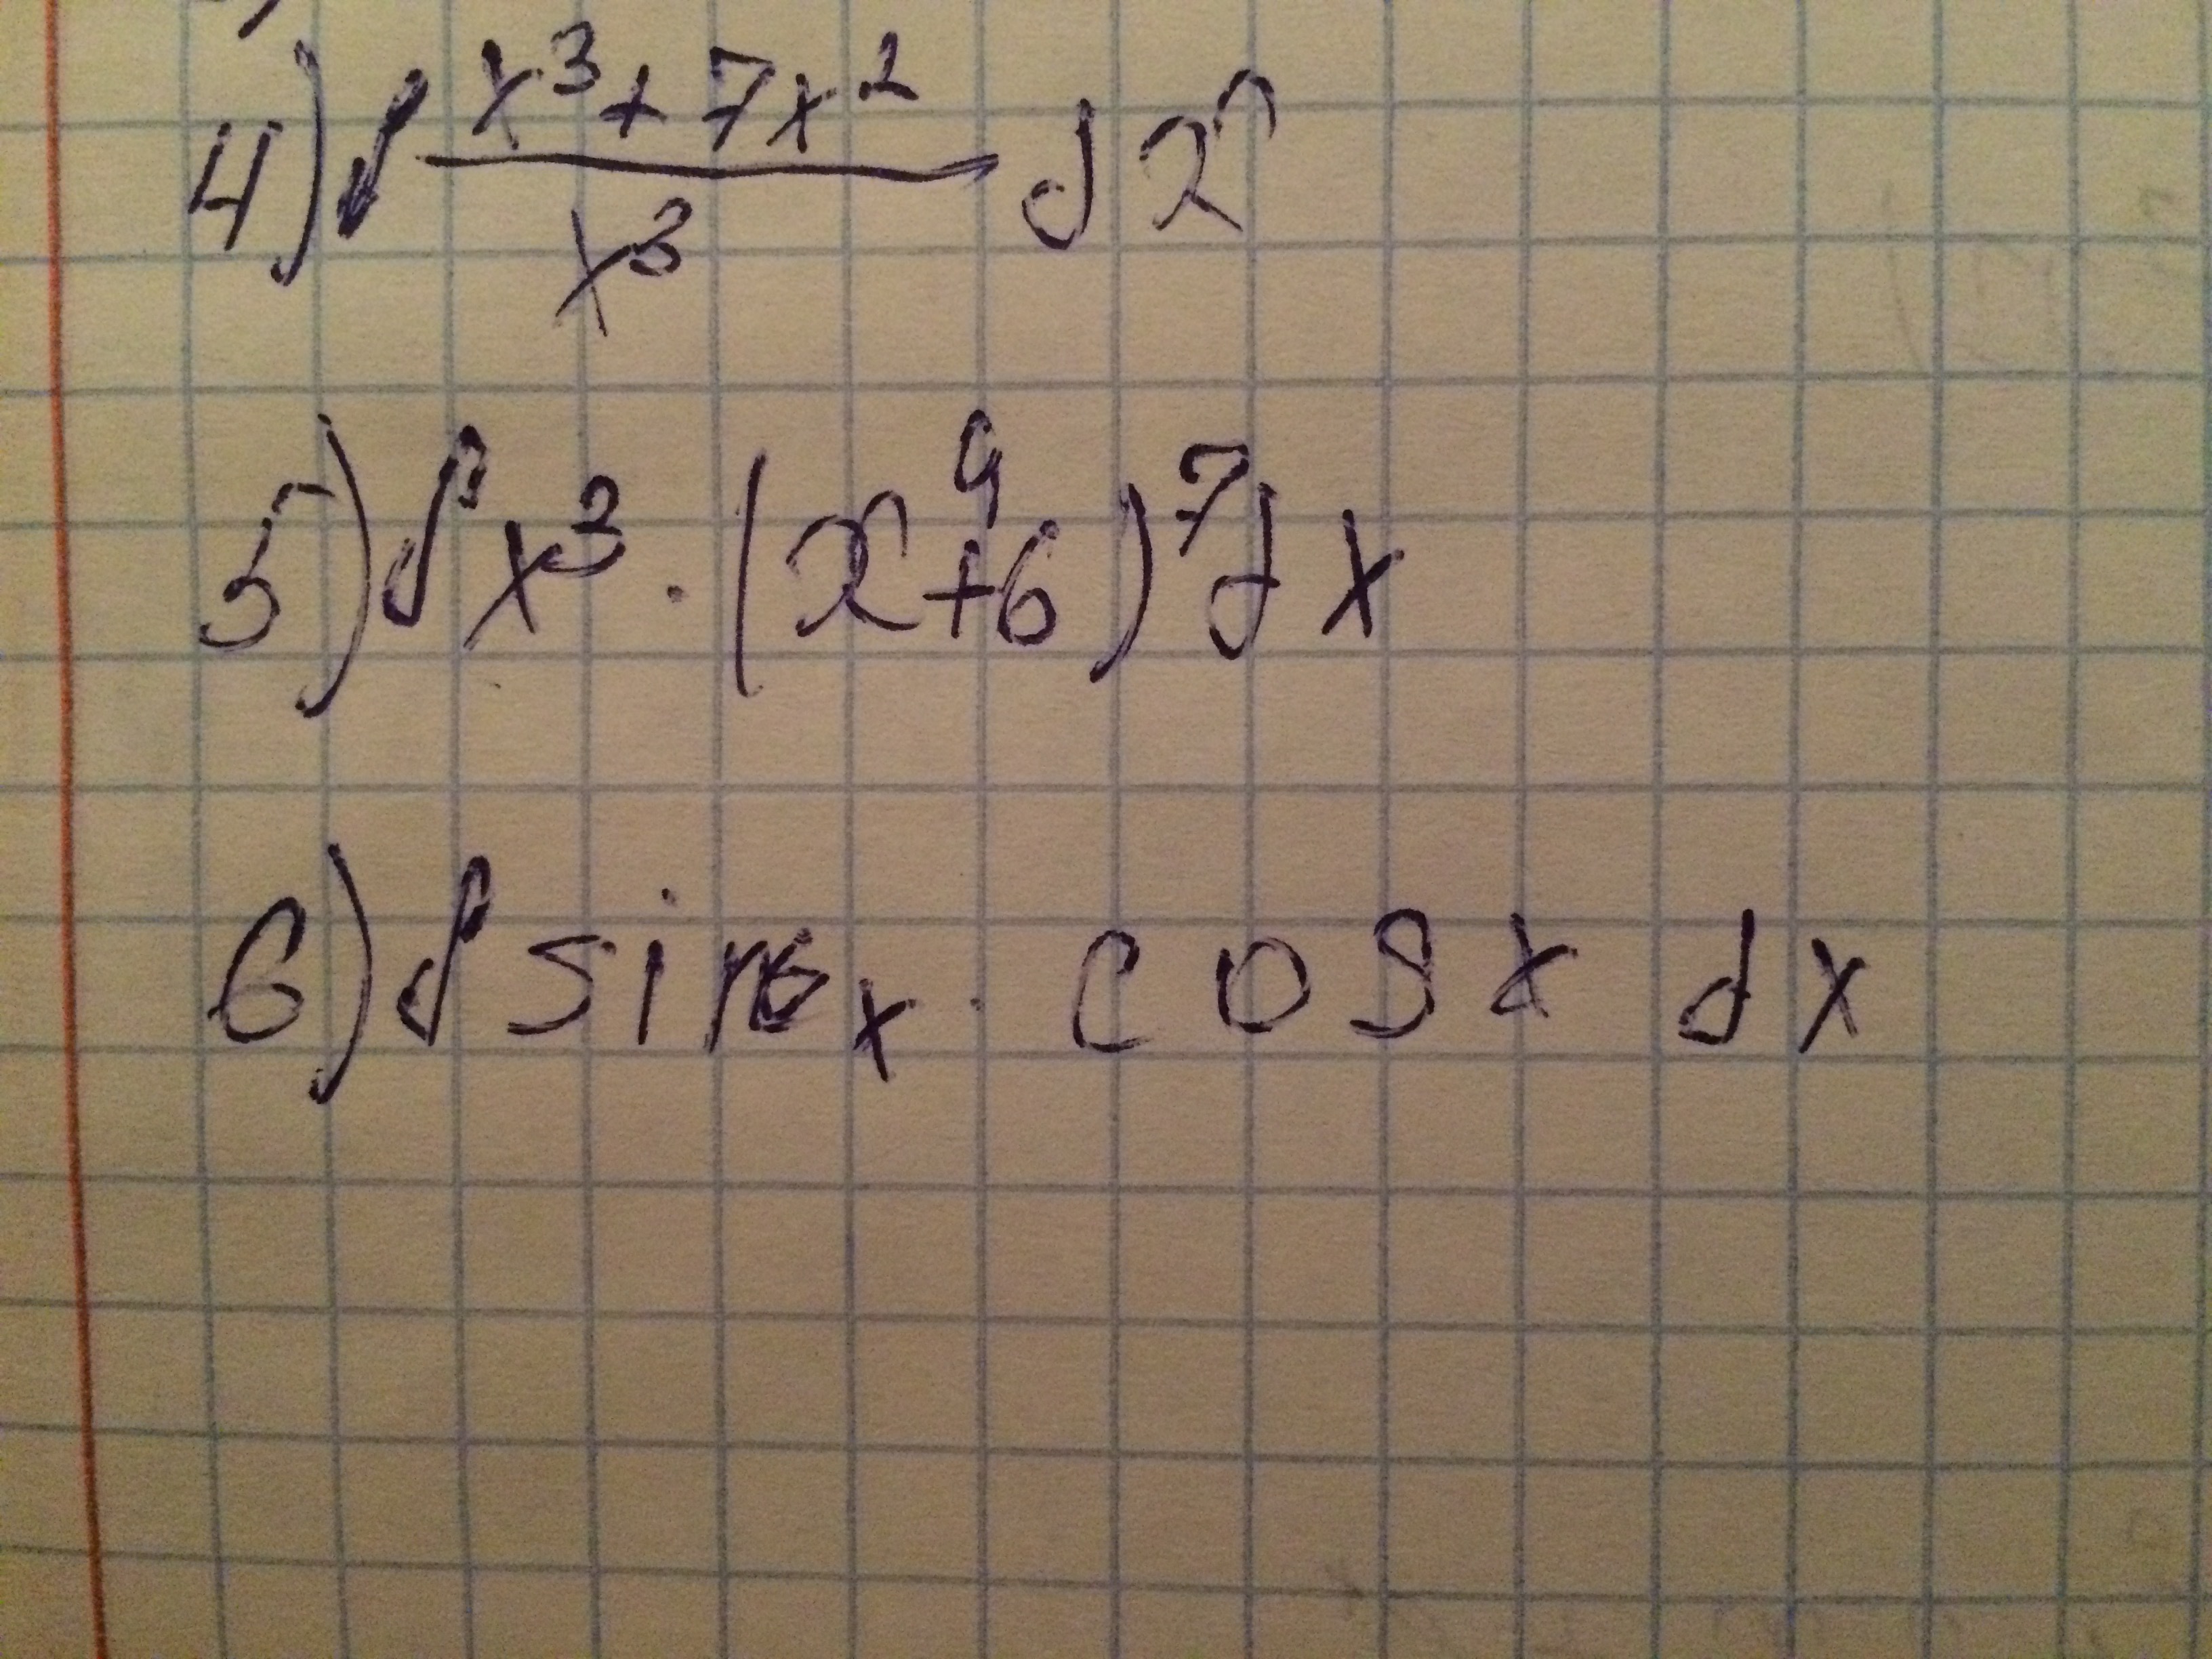 4) ∫ (x³ + 7x²)/x³ dx
5) ∫ x³ · (x⁴ + 6)⁷ dx
6) ∫ sin x · cos x dx